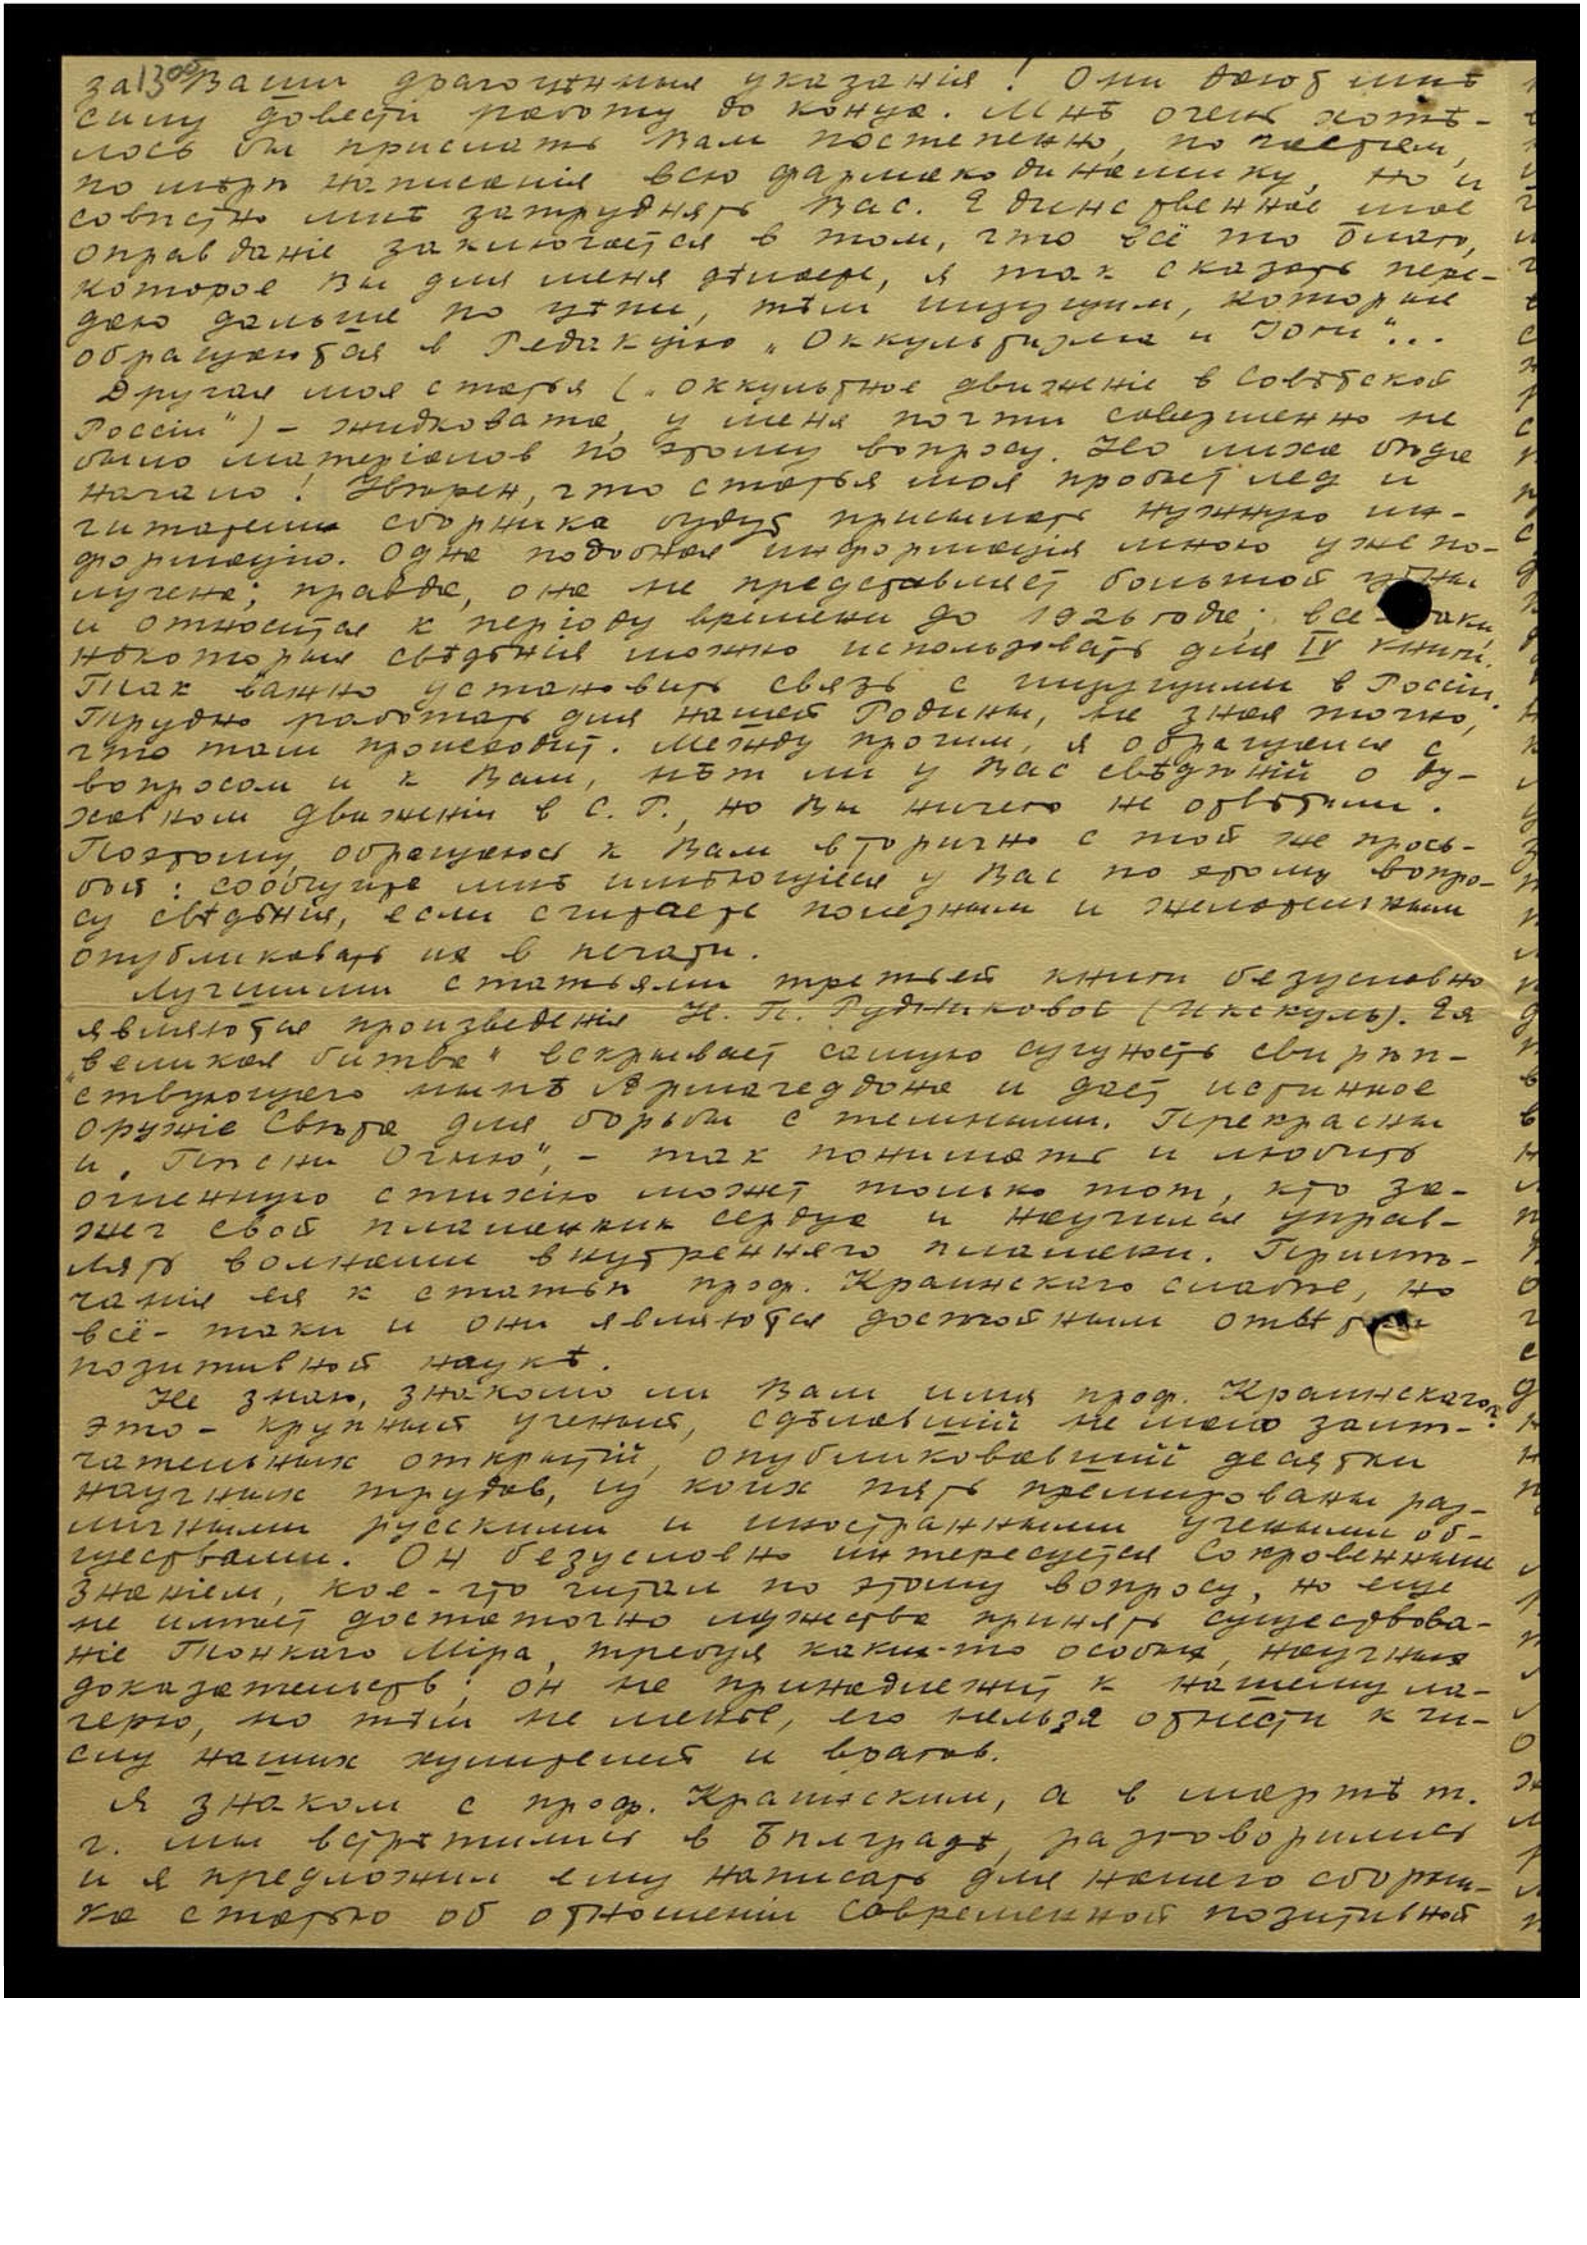 за Ваши драгоцѣнныя указанія! Они дают мнѣ
силу довести работу до конца. Мнѣ очень хотѣ-
лось бы присылать Вам постепенно, по частям,
по мѣрѣ написанія всю фармакодинамику, но и
совѣстно мнѣ затруднять Вас. Единственное мое
оправданіе заключается в том, что всё то благо,
которое Вы для меня дѣлаете, я так сказать пере-
даю дальше по цѣпи, тѣм ищущим, которые
обращаются в Редакцію „Оккультизма и Іоги"...
Другая моя статья („Оккультное движеніе в Совѣтской
Россіи") – жидковата, у меня почти совершенно не
было матеріалов по этому вопросу. Но лиха бѣда
начало! Увѣрен, что статья моя пробьет лед и
читатели сборника будут присылать нужную ин-
формацію. Одна подобная информація мною уже по-
лучена; правда, она не представляет большой цѣны
и относится к періоду времени до 1926 года; все-таки
нѣкоторыя свѣдѣнія можно использовать для IV книги.
Так важно установить связь с ищущими в Россіи.
Трудно работать для нашей Родины, не зная точно,
что там происходит. Между прочим, я обращался с
вопросом и к Вам, нѣт ли у Вас свѣдѣній о ду-
ховном движеніи в С. Р., но Вы ничего не отвѣтили.
Поэтому, обращаюсь к Вам вторично с той же прось-
бой: сообщите мнѣ имѣющіеся у Вас по этому вопро-
су свѣдѣнія, если считаете полезным и желательным
опубликовать их в печати.
Лучшими статьями третьей книги безусловно
являются произведенія Н. П. Рудниковой (Икскуль). Ея
„Великая битва" вскрывает самую сущность свирѣп-
ствующего нынѣ Армагеддона и дает истинное
оружіе Свѣта для борьбы с темными. Прекрасны
и „Пѣсни Огню", – так понимать и любить
огненную стихію может только тот, кто за-
жег свой пламенник сердца и научился управ-
лять волнами внутреннего пламени. Примѣ-
чанія ея к статьѣ проф. Краинскаго слабѣе, но
всё-таки и они являются достойным отвѣтом
позитивной наукѣ.
Не знаю, знакомо ли Вам имя проф. Краинскаго?
Это – крупный ученый, сдѣлавшій не мало замѣ-
чательных открытій, опубликовавшій десятки
научных трудов, из коих пять премированы раз-
личными русскими и иностранными учеными об-
ществами. Он безусловно интересуется Сокровенным
Знаніем, кое-что читал по этому вопросу, но еще
не имѣет достаточно мужества принять существова-
ніе Тонкаго Міра, требуя каких-то особых, научных
доказательств; он не принадлежит к нашему ла-
герю, но тѣм не менѣе, его нельзя отнести к чи-
слу наших хулителей и врагов.
Я знаком с проф. Краинским, а в мартѣ т.
г. мы встрѣтились в Бѣлградѣ, разговорились
и я предложил ему написать для нашего сборни-
ка статью об отношеніи современной позитивной